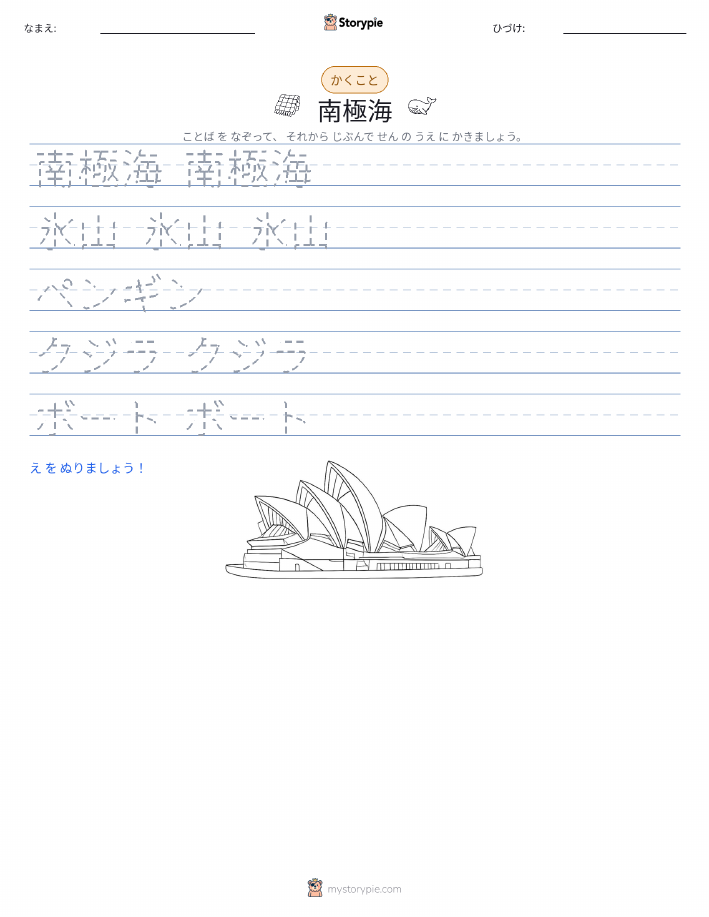 なまえ:
Storypie
ひづけ:
かくこと
南極海
ことば を なぞって、 それから じぶんで せん の うえ に かきましょう。
南極海 南極海
氷山 氷山 氷山
ペンギン
クジラ クジラ
ボート ボート
え を ぬりましょう！
mystorypie.com